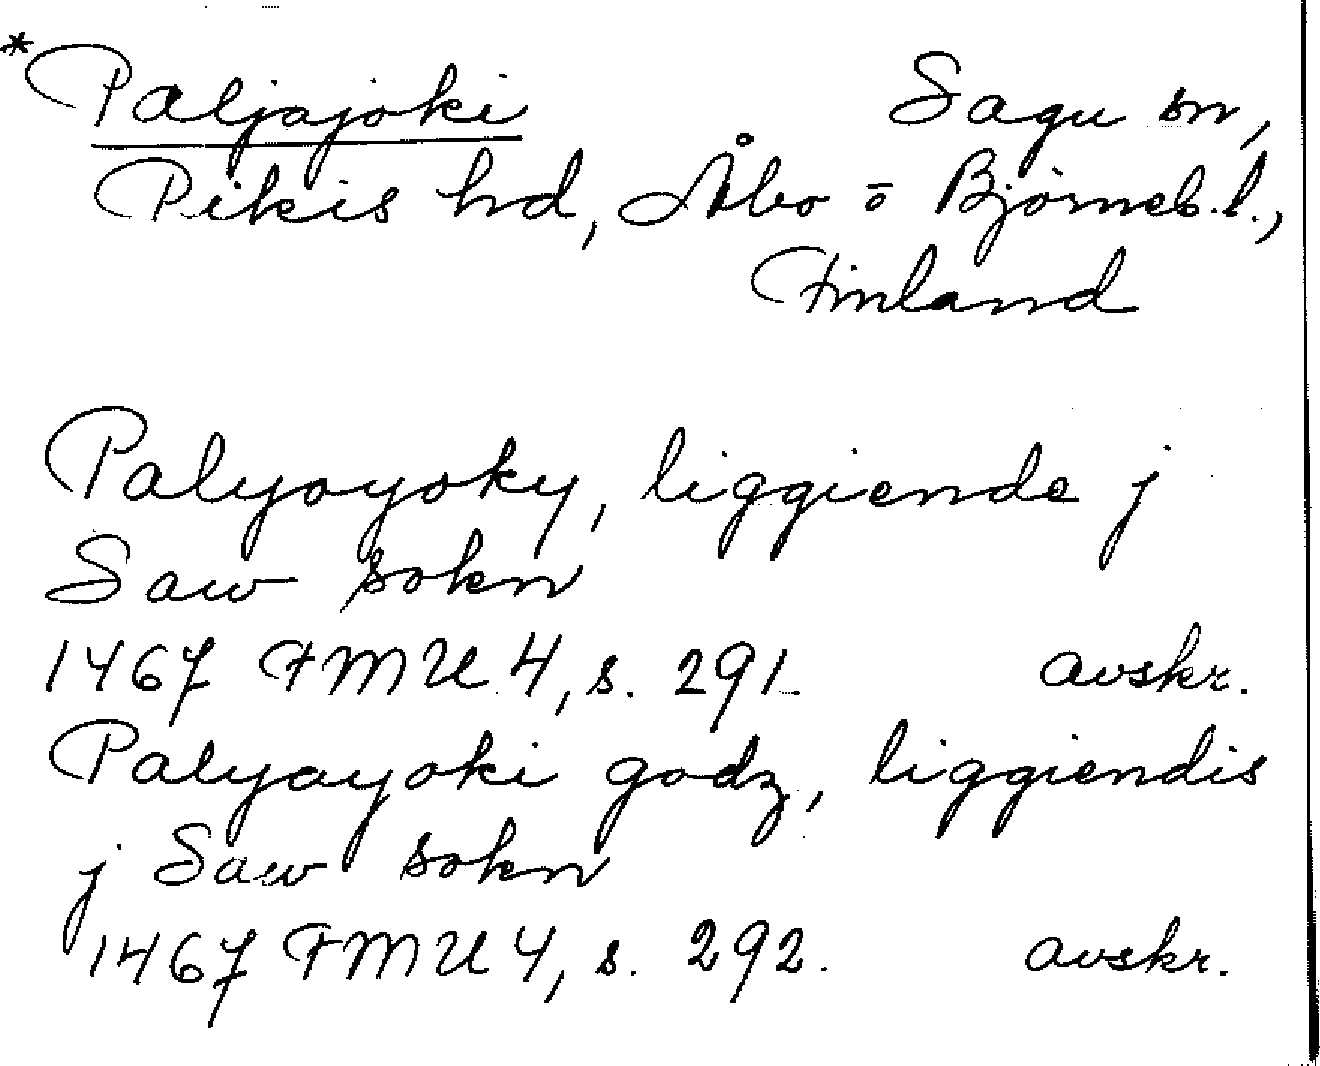 *Paljajoki Sagu sn,
Pikis hd, Åbo o Björneb. l.,
Finland
Palyoyoky, liggiende j
Saw sokn
1467 FMU 4, s. 291 avskr.
Palyayoki godz, liggiendis
j Saw sokn
1467 FMU 4, s. 292. avskr.